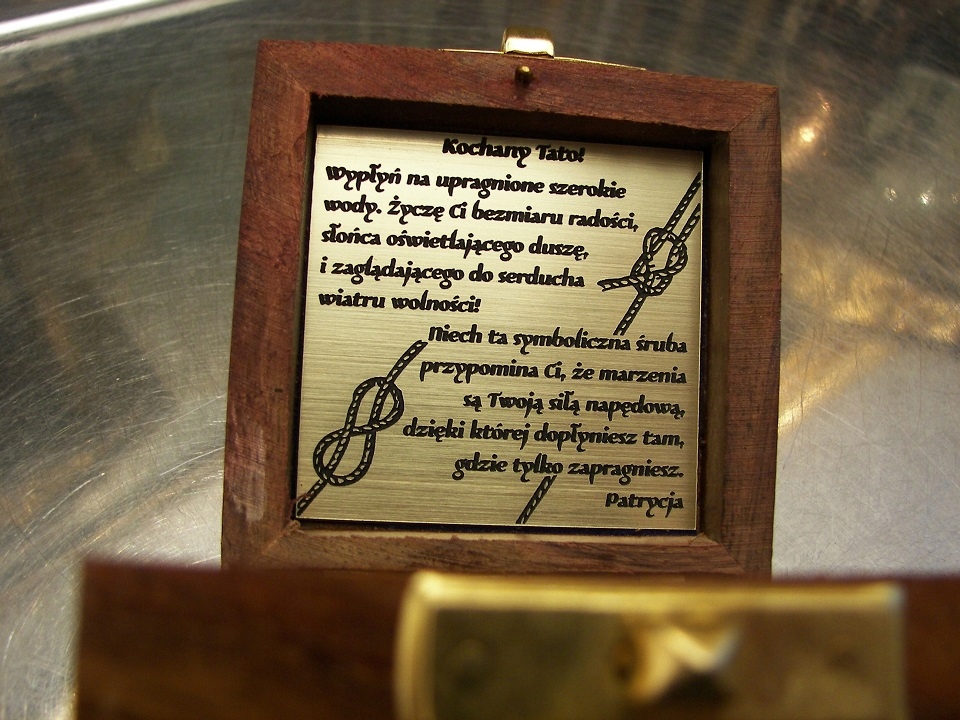 Kochany Tato!
Wypłyń na upragnione szerokie
wody. Życzę Ci bezmiaru radości,
słońca oświetlającego duszę,
i zaglądającego do serducha
wiatru wolności!
Niech ta symboliczna śruba
przypomina Ci, że marzenia
są Twoją siłą napędową,
dzięki której dopłyniesz tam,
gdzie tylko zapragniesz.
Patrycja